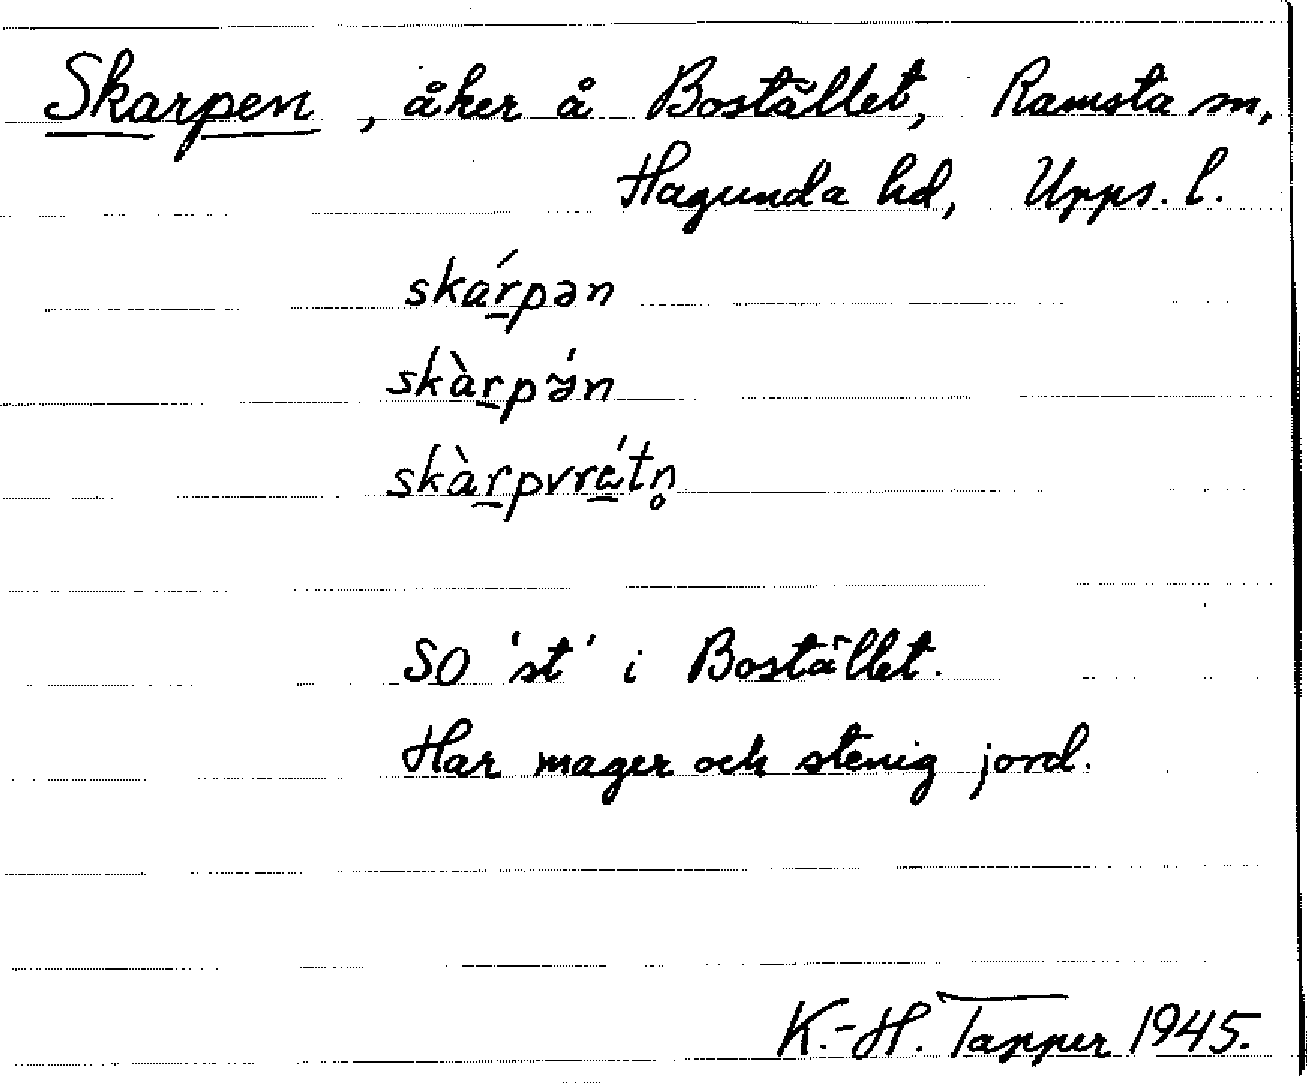 Skarpen, åker å Bostället, Ramsta sn,
Hagunda hd, Upps. l.
ska̱ŕpən
skàṟpə́n
skàṟpvré̱tn̥
SO 'st' i Bostället.
Har mager och stenig jord.
K.-H. Tapper 1945.